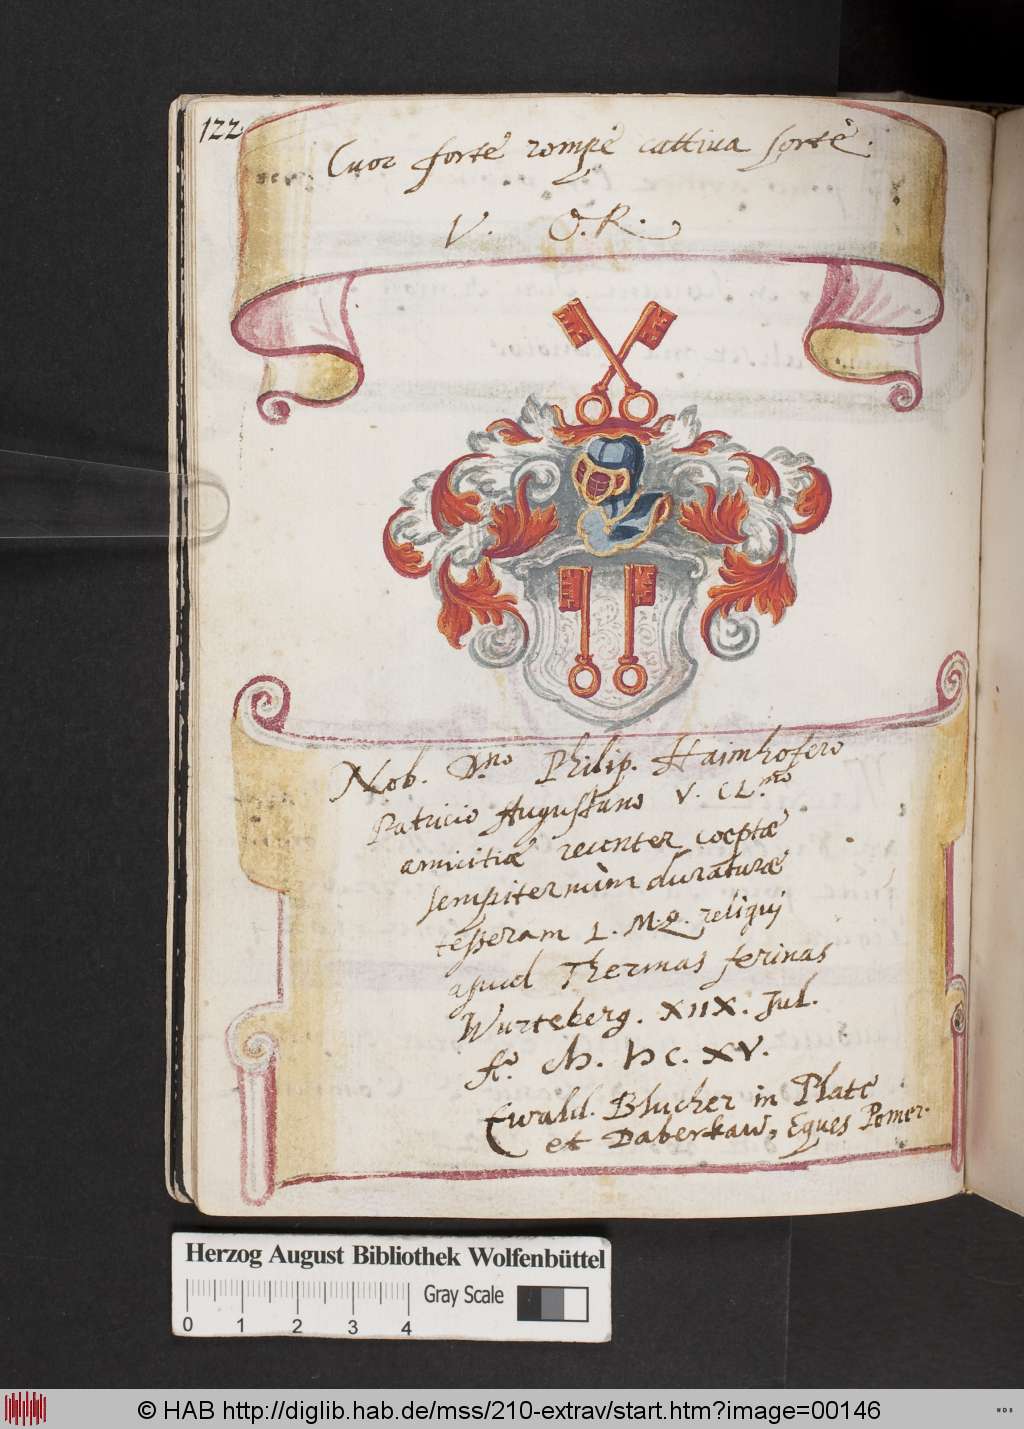 122.
Cuor forte rompe cattiua sorte.
V. O.R.
Nob. Dno Philip. Haimhofero
Patricio Augustano V. CL.mo
amicitiæ recenter coeptæ
sempiternùm duraturæ
tesseram L. M.Q. reliqui
apud Thermas ferinas
Wurteberg. XIIX. Jul.
XV.
Ewald. Blucher in Plate
et Daberkaw, Eques Pomer.
Herzog August Bibliothek Wolfenbüttel
Gray Scale
0 1 2 3 4
© HAB http://diglib.hab.de/mss/210-extrav/start.htm?image=00146